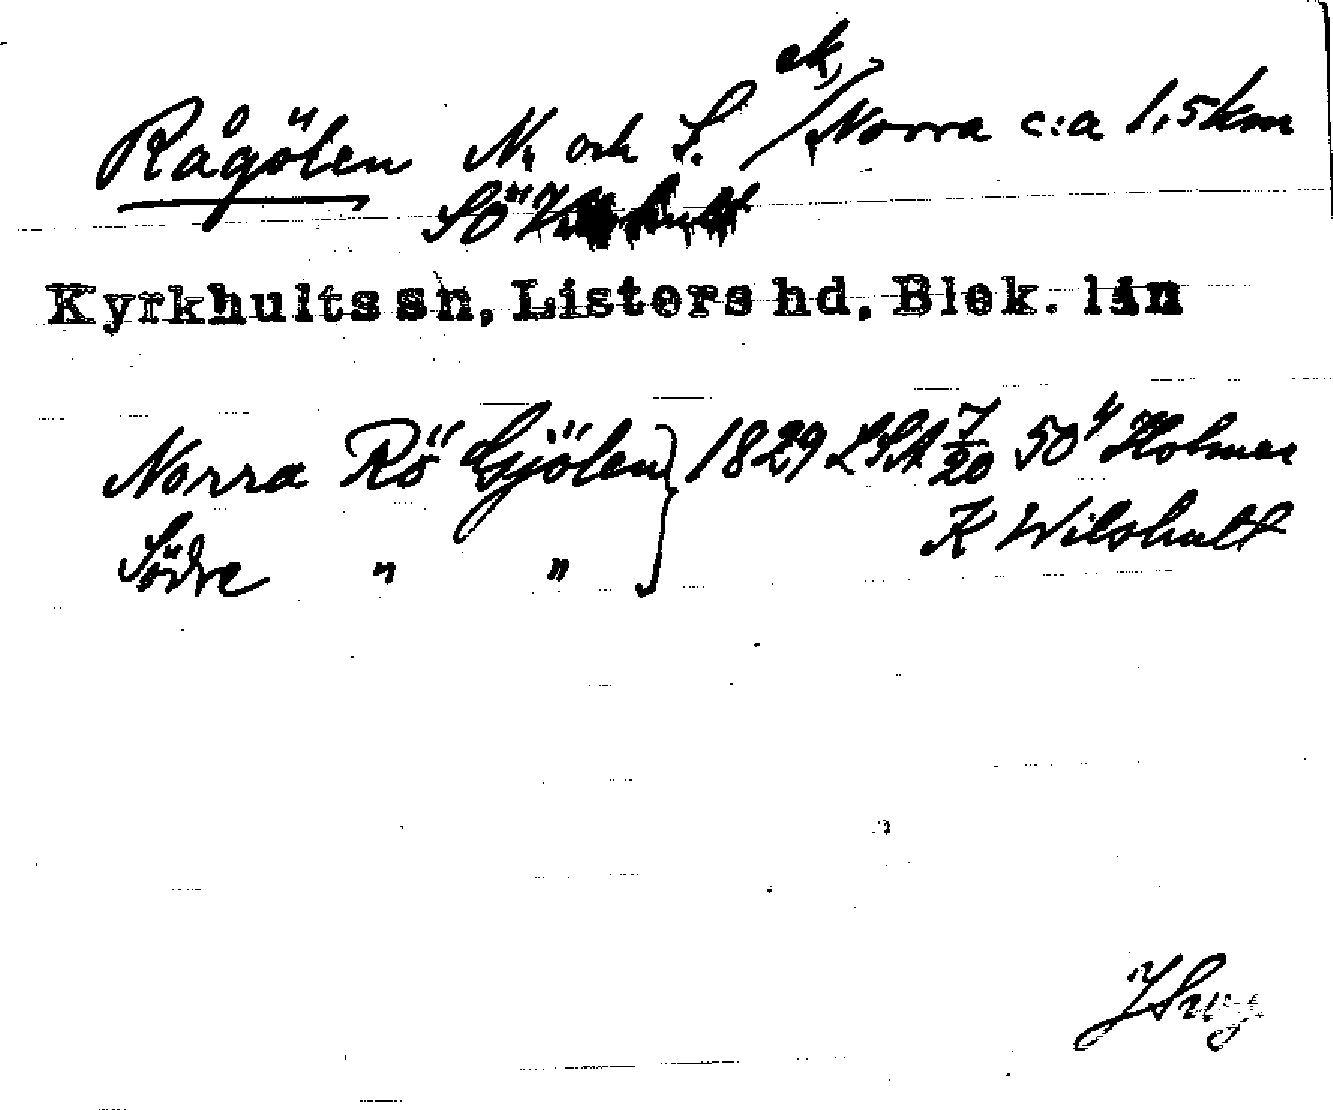 ek,
Rågölen N. och S. /Norra c:a 1,5 km
SÖ
Kyrkhults sn, Listers hd, Blek. län
Norra Rö Gjölen } 1829 LSA 7/20 50 4 Holmen
Södre " " K Wilshult